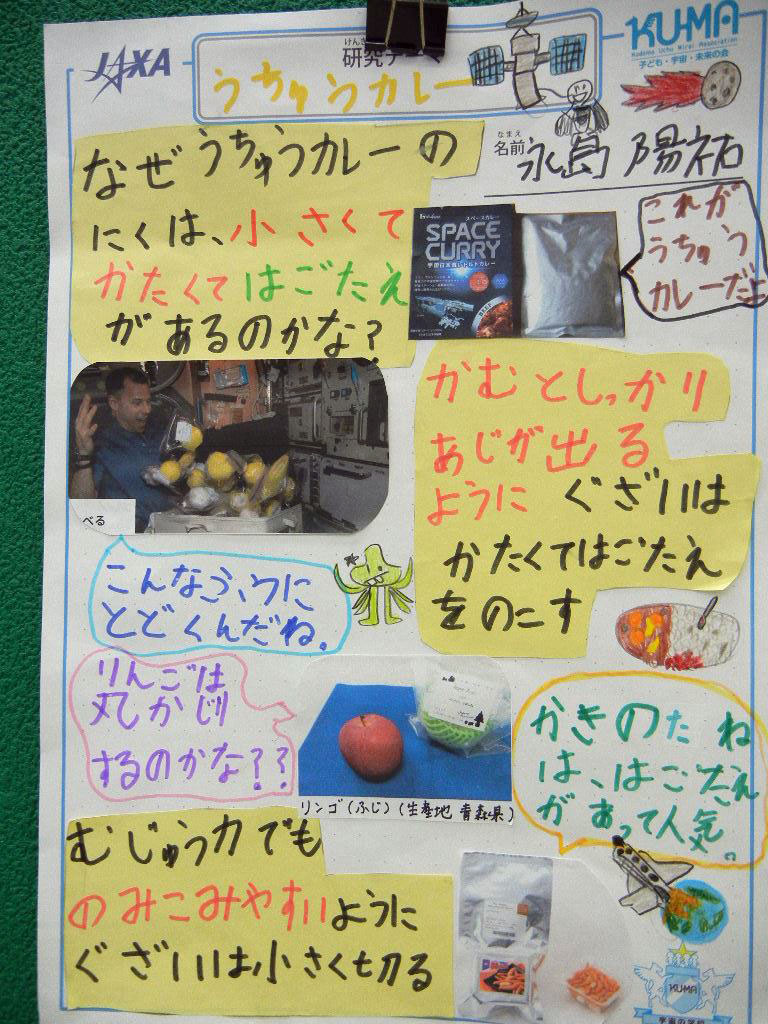 JAXA
研究テーマ
けんき
うちゅうカレー
KU-MA
Kodomo Uchu Mirai Association
子ども・宇宙・未来の会
なまえ
名前 永島 陽祐
なぜうちゅうカレーの
にくは、小さくて
かたくてはごたえ
があるのかな?
スペースカレー
SPACE
CURRY
宇宙日本食レトルトカレー
これが
うちゅう
カレーだよ
かむとしっかり
あじが出る
ように ぐざいは
かたくてはごたえ
をのこす
べる
こんなふうに
とどくんだね。
りんごは
丸かじり
するのかな??
リンゴ(ふじ)(生産地 青森県)
かきのたね
は、はごたえ
があって人気。
むじゅう力でも
のみこみやすいように
ぐざいは小さく切る
KU-MA
宇宙の学校